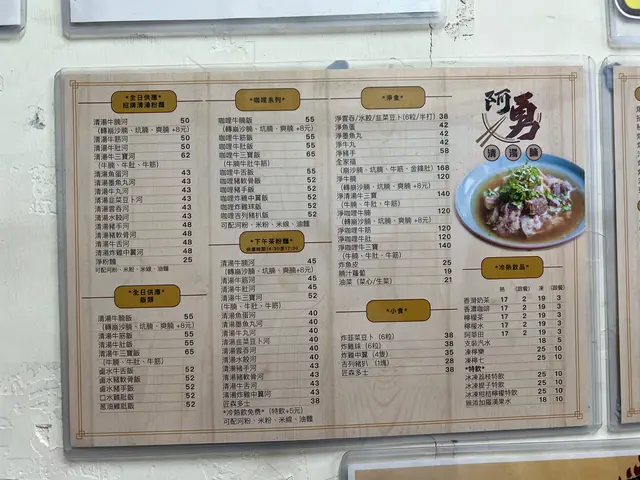 *全日供應*
招牌清湯粉麵
清湯牛腩河 50
(轉崩沙腩、坑腩、爽腩 +8元)
清湯牛筋河 50
清湯牛肚河 50
清湯牛三寶河 62
(牛腩、牛肚、牛筋)
清湯魚蛋河 43
清湯墨魚丸河 43
清湯牛丸河 43
清湯韮菜豆卜河 43
清湯雲吞河 43
清湯水餃河 43
清湯豬手河 48
清湯豬軟骨河 48
清湯牛舌河 48
清湯炸雞中翼河 48
淨粉麵 25
可配河粉、米粉、米線、油麵
*全日供應*
飯類
清湯牛腩飯 55
(轉崩沙腩、坑腩、爽腩 +8元)
清湯牛筋飯 55
清湯牛肚飯 55
清湯牛三寶飯 65
(牛腩、牛肚、牛筋)
鹵水牛舌飯 52
鹵水豬軟骨飯 52
鹵水豬手飯 52
口水雞扒飯 52
蔥油雞扒飯 52
*咖喱系列*
咖喱牛腩飯 55
(轉崩沙腩、坑腩、爽腩 +8元)
咖喱牛筋飯 55
咖喱牛肚飯 55
咖喱牛三寶飯 65
(牛腩牛肚牛筋)
咖喱牛舌飯 52
咖喱豬軟骨飯 52
咖喱豬手飯 52
咖喱炸雞中翼飯 52
咖喱炸雞球飯 52
咖喱吉列豬扒飯 52
可配河粉、米粉、米線、油麵
*下午茶粉麵*
清湯牛腩河 45
(轉崩沙腩、坑腩、爽腩 +8元)
清湯牛筋河 45
清湯牛肚河 45
清湯牛三寶河 52
(牛腩、牛肚、牛筋)
清湯魚蛋河 40
清湯墨魚丸河 40
清湯牛丸河 40
清湯韮菜豆卜河 40
清湯雲吞河 40
清湯水餃河 40
清湯豬手河 43
清湯豬軟骨河 43
清湯牛舌河 43
清湯炸雞中翼河 43
匠森多士 38
*冷熱飲免費* (特飲+5元)
可配河粉、米粉、米線、油麵
*淨食*
淨雲吞/水餃/韮菜豆卜(6粒/半打) 38
淨魚蛋 42
淨墨魚丸 42
淨牛丸 42
淨豬手 58
全家福
(崩沙腩、坑腩、牛筋、金錢肚) 168
淨牛腩 120
(轉崩沙腩、坑腩、爽腩 +8元)
淨清湯牛三寶 140
(牛腩、牛肚、牛筋)
淨咖喱牛腩 120
(轉崩沙腩、坑腩、爽腩 +8元)
淨咖喱牛筋 120
淨咖喱牛肚 120
淨咖喱牛三寶 140
(牛腩、牛肚、牛筋)
炸魚皮 25
腩汁蘿蔔 19
油菜 (菜心/生菜) 21
*小食*
炸韮菜豆卜 (6粒) 38
炸雞球 (6粒) 38
炸雞中翼 (4隻) 35
吉列豬扒 (1塊) 28
匠森多士 38
阿勇
清湯腩
*冷熱飲品*
熱 (跟餐) 凍 (跟餐)
香滑奶茶 17 2 19 3
香濃咖啡 17 2 19 3
檸檬茶 17 2 19 3
檸檬水 17 2 19 3
阿華田 17 2 19 3
支裝汽水 18 5
凍檸樂 25 10
凍檸七 25 10
*特飲*
冰凍荔枝特飲 25 10
冰凍提子特飲 25 10
冰凍柑桔檸檬特飲 25 10
無添加羅漢果水 18 10